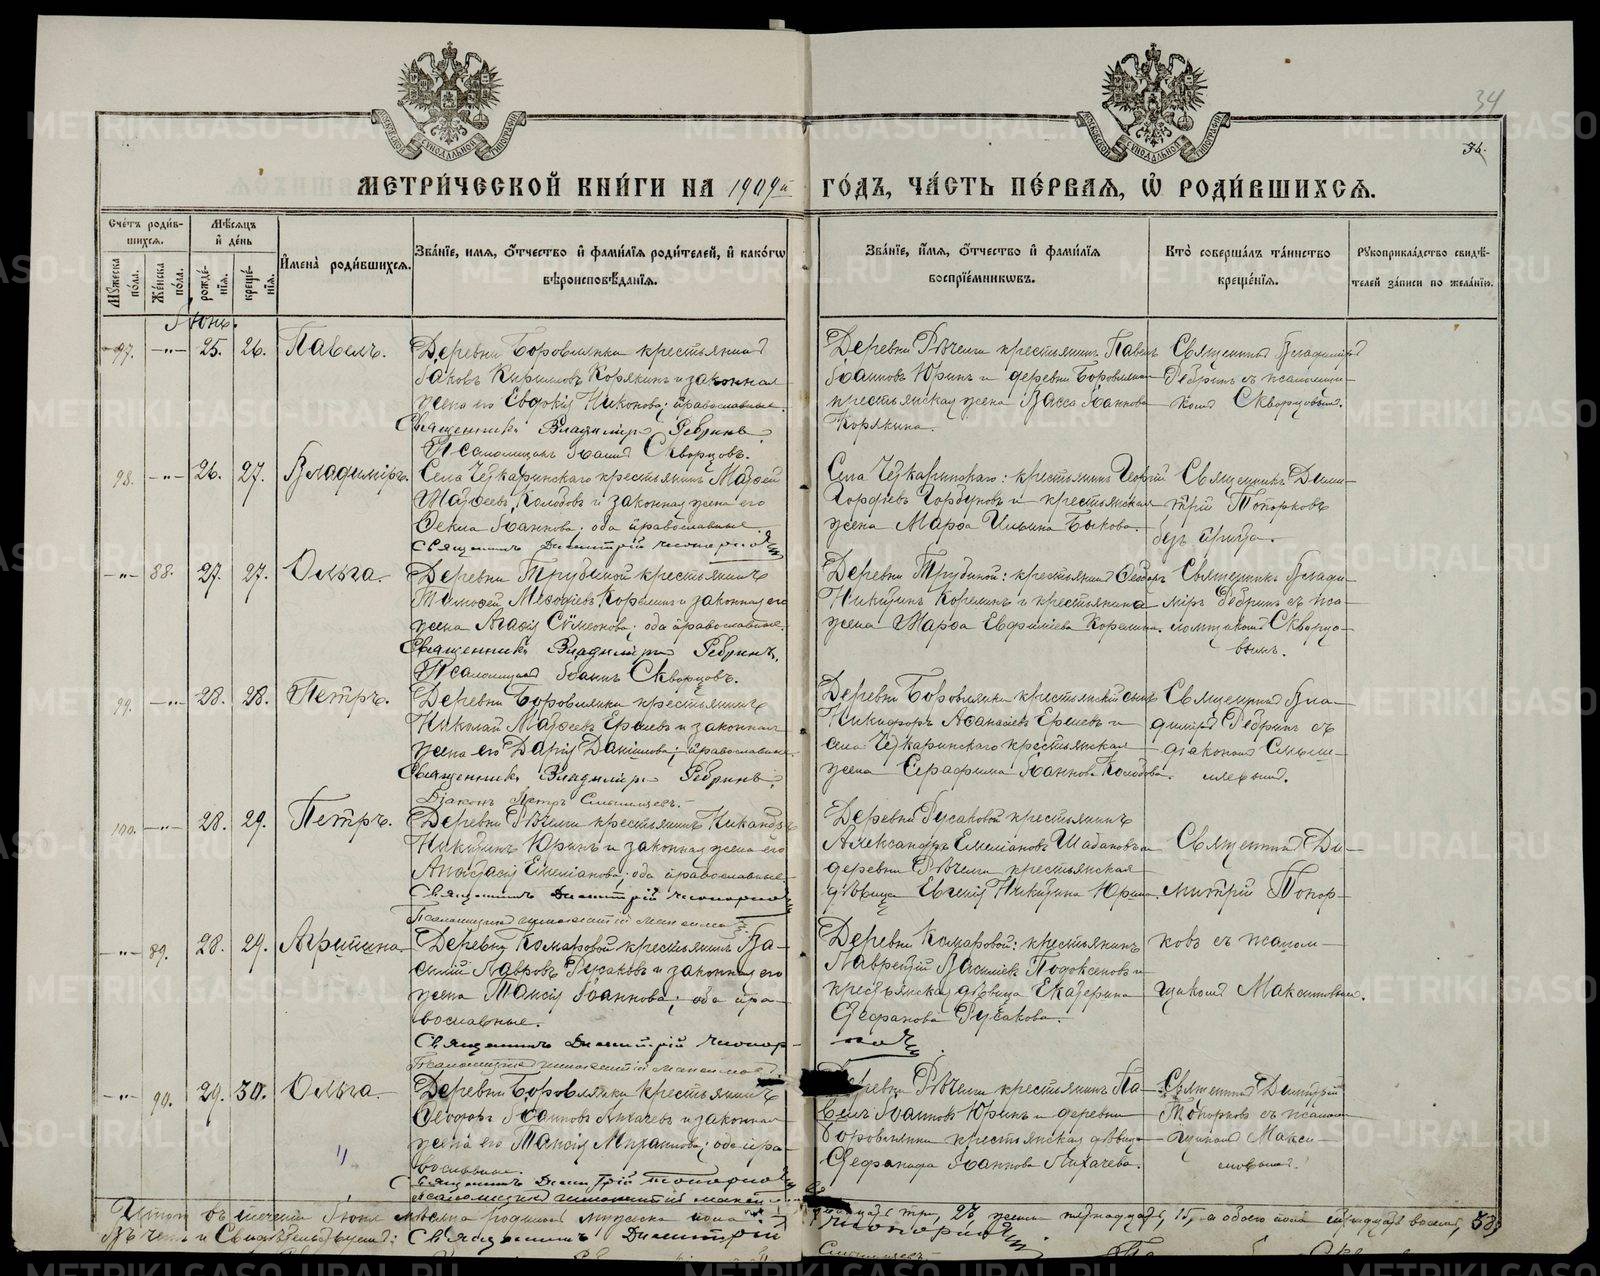 34
34.
МЕТРИ́ЧЕСКОЙ КНИ́ГИ НА 1909й ГО́ДЪ, ЧА́СТЬ ПЕ́РВАЯ, Ѡ РОДИ́ВШИХСѦ.
Сче́тъ роди́вшихся.
Мужеска по́ла.
Же́нска по́ла.
Мѣ́сяцъ и́ де́нь
рожде́нїя.
креще́нїя.
И́мена̀ роди́вшихся.
Зва́нїе, имя, о́тчество и́ фами́лїя роди́телей, и́ како́гѡ вѣроисповѣ́данїя.
Зва́нїе, и́мя, о́тчество и́ фами́лїя воспрїе́мниковъ.
Кто̀ соверша́лъ та́инство креще́нїя.
Рукоприкла́дство свидѣ́телей за́писи по жела́нїю.
Іюнь.
97. —"— 25. 26. Павелъ.
Деревни Боровлянки крестьянинъ
Іаковъ Кирилловъ Корякинъ и законная
жена его Евдокія Никонова; православные.
Священникъ Владимиръ Ребринъ.
Псаломщикъ Іоаннъ Скворцовъ.
Деревни Рѣчелги крестьянинъ Павелъ
Іоанновъ Юринъ и деревни Боровлянки
крестьянская жена Васса Іоаннова
Корякина.
Священникъ Владимиръ
Ребринъ съ псаломщи-
комъ Скворцовымъ.
98. —"— 26. 27. Владиміръ.
Села Четкаринскаго крестьянинъ Матѳей
Матѳеевъ Колобовъ и законная жена его
Ѳекла Іоаннова; оба православные.
Священникъ Димитрій Топорковъ
Села Четкаринскаго: крестьянинъ Георгій
Гордѣевъ Горбуновъ и крестьянская
жена Марѳа Ильина Быкова.
Священникъ Дими-
трій Топорковъ
безъ причта.
—"— 88. 27. 27. Ольга.
Деревни Трубиной крестьянинъ
Тимоѳей Меѳодіевъ Корелинъ и законная его
жена Агаѳія Симеонова; оба православные.
Священникъ Владимиръ Ребринъ.
Псаломщикъ Іоаннъ Скворцовъ.
Деревни Трубиной: крестьянинъ Ѳеодоръ
Никитинъ Корелинъ и крестьянина
жена Марѳа Евфиміева Корелина.
Священникъ Влади-
міръ Ребринъ съ пса-
ломщикомъ Скворцо-
вымъ.
99. —"— 28. 28. Петръ.
Деревни Боровлянки крестьянинъ
Николай Матѳеевъ Ершевъ и законная
жена его Дарія Даніилова; православные.
Священникъ Владимиръ Ребринъ.
Діаконъ Петръ
Деревни Боровлянки крестьянскій сынъ
Никифоръ Аѳанасіевъ Ершевъ и
села Четкаринскаго крестьянская
жена Серафима Іоаннова Колобова.
Священникъ Вла-
димиръ Ребринъ съ
діакономъ
100. —"— 28. 29. Петръ.
Деревни Рѣчелги крестьянинъ Никандръ
Никитинъ Юринъ и законная жена его
Анастасія Емеліанова; оба православные.
Священникъ Димитрій Топорковъ
Псаломщикъ Иннокентій Максимовъ
Деревни Русаковой крестьянинъ
Александръ Емеліановъ Шабановъ и
деревни Рѣчелги крестьянская
дѣвица Евгенія Никитина Юрина.
Священникъ Ди-
митрій Топор-
—"— 89. 28. 29. Агрипина.
Деревни Комаровой крестьянинъ Ва-
силій Лавровъ Русаковъ и законная его
жена Таисія Іоаннова; оба пра-
вославные.
Священникъ Димитрій Топор-
ковъ
Псаломщикъ Иннокентій Максимовъ.
Деревни Комаровой: крестьянинъ
Лаврентій Василіевъ Подоксеновъ и
крестьянская дѣвица Екатерина
Стефанова Русакова.
ковъ съ псалом-
щикомъ Максимовымъ.
—"— 90. 29. 30. Ольга.
Деревни Боровлянки крестьянинъ
Ѳеодоръ Іоанновъ Лихачевъ и законная
жена его Таисія Михаилова; оба пра-
вославные.
Священникъ Димитрій Топорковъ
Псаломщикъ Иннокентій Максимовъ
Деревни Рѣчелги крестьянинъ Па-
велъ Іоанновъ Юринъ и деревни
Боровлянки крестьянская дѣвица
Стефанида Іоаннова Лихачева.
Священникъ Димитрій
Топорковъ съ псалом-
щикомъ Макси-
мовымъ.
Итого въ теченіи Іюня мѣсяца родилось мужска пола двадцать три, 23, женска пятнадцать, 15, а обоего пола тридцать восемь, 38,
Священникъ Димитрій Топорковъ
METRIKI.GASO-URAL.RU